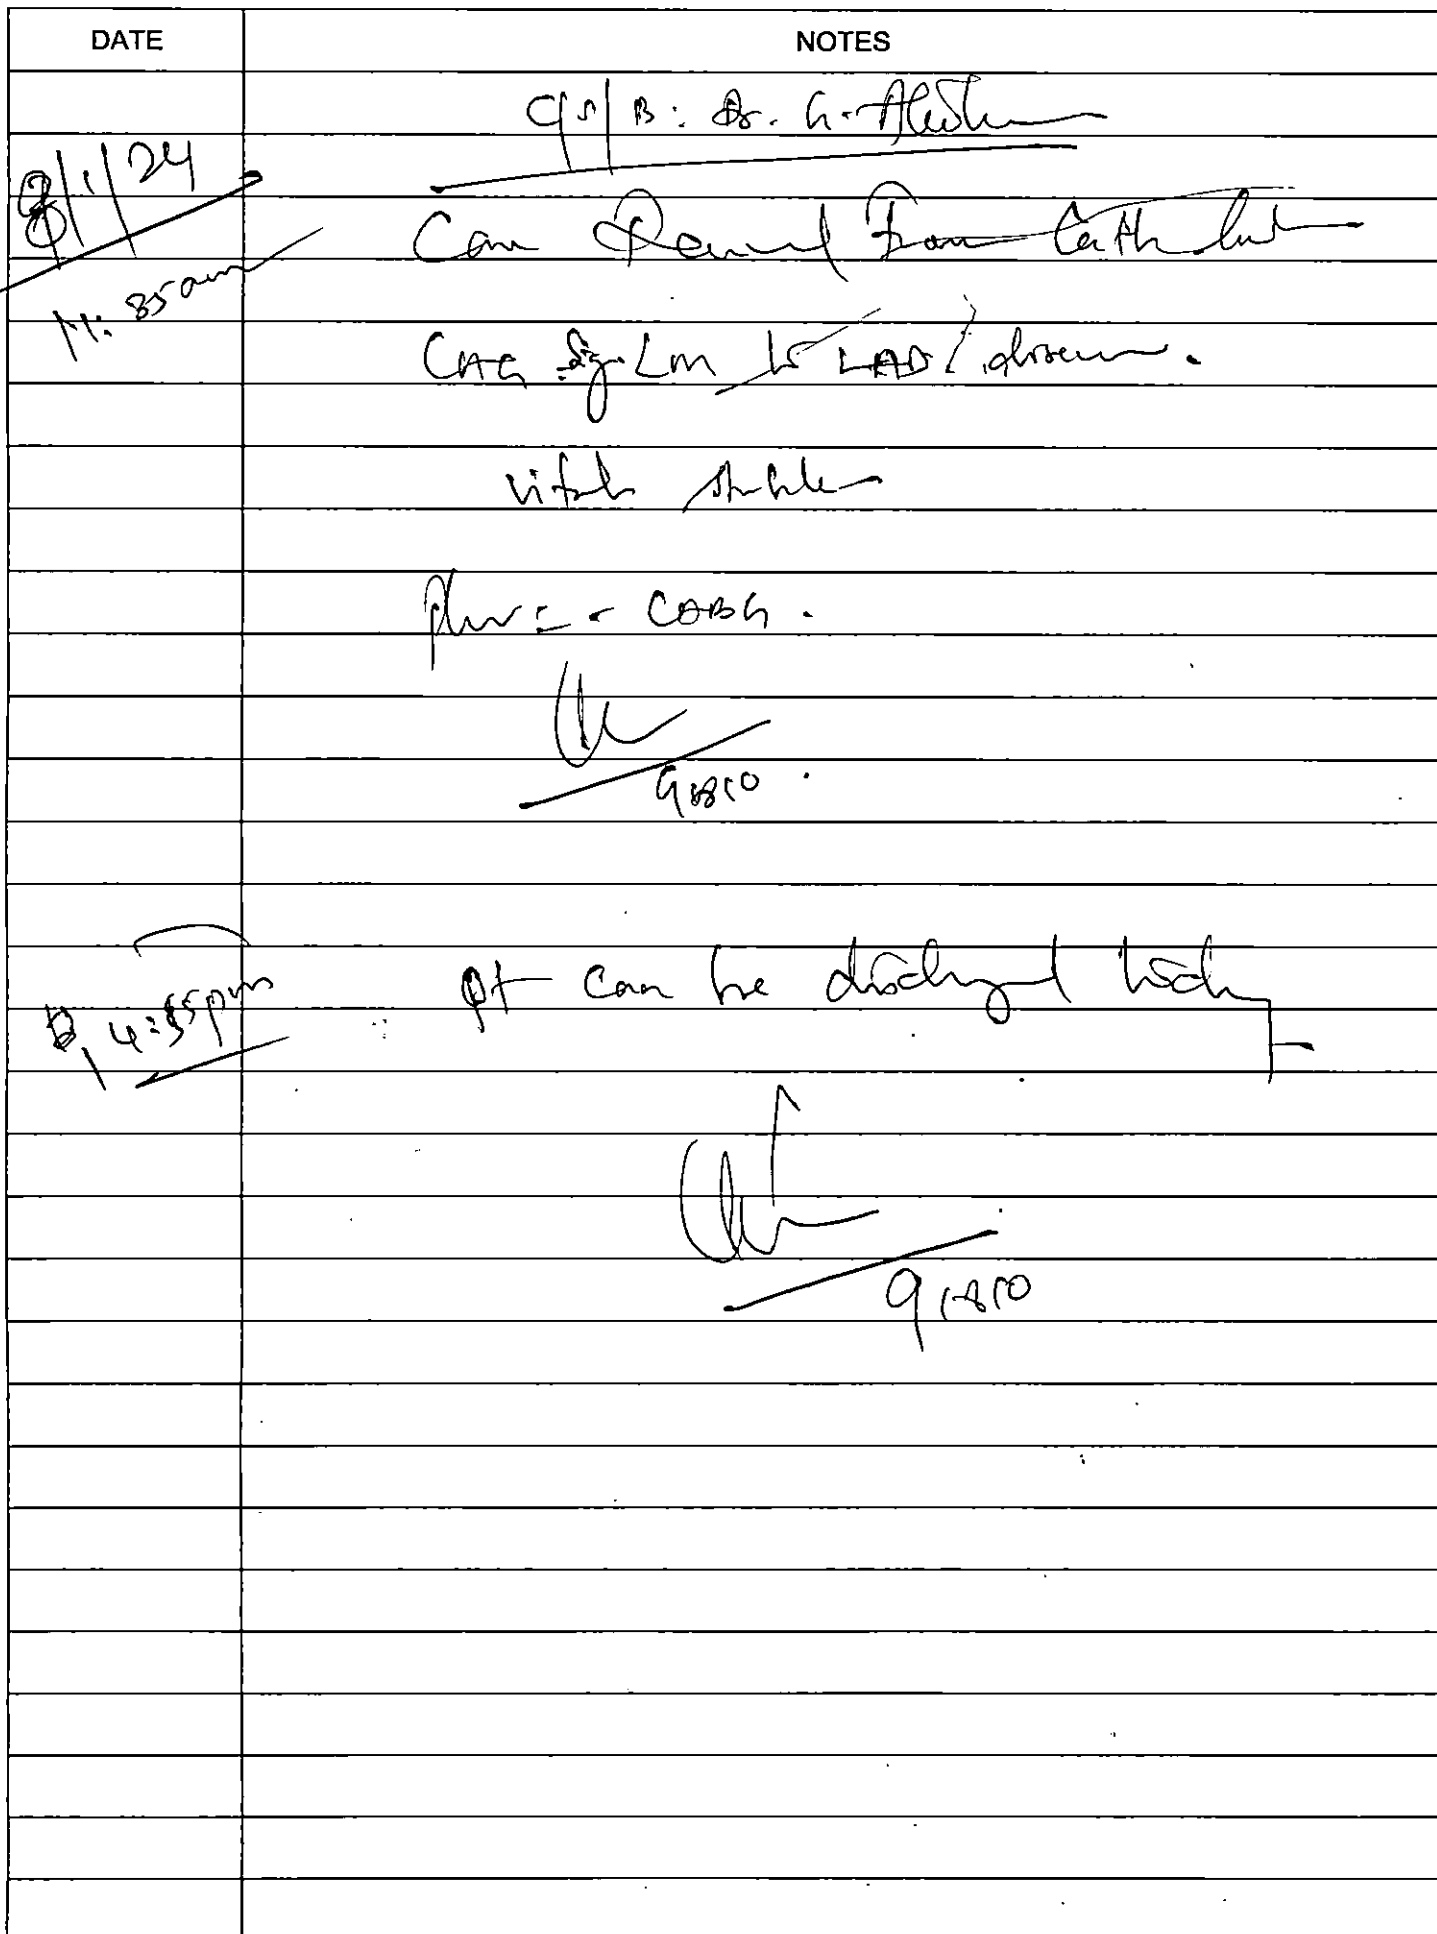 DATE NOTES
C/S/B: Dr. G.
8/1/24
Case Received From Cath lab
11:35am
CAG Sig. LM to LAD disease.
vitals stable
Plan:- - CABG.
91810
4:35pm pt can be discharged today
91810